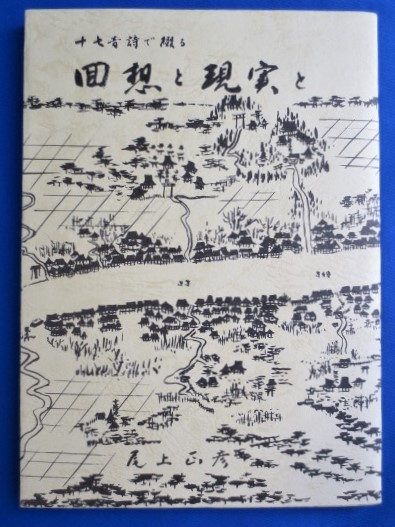 十七音詩で綴る
回想と現実と
尾上正彦